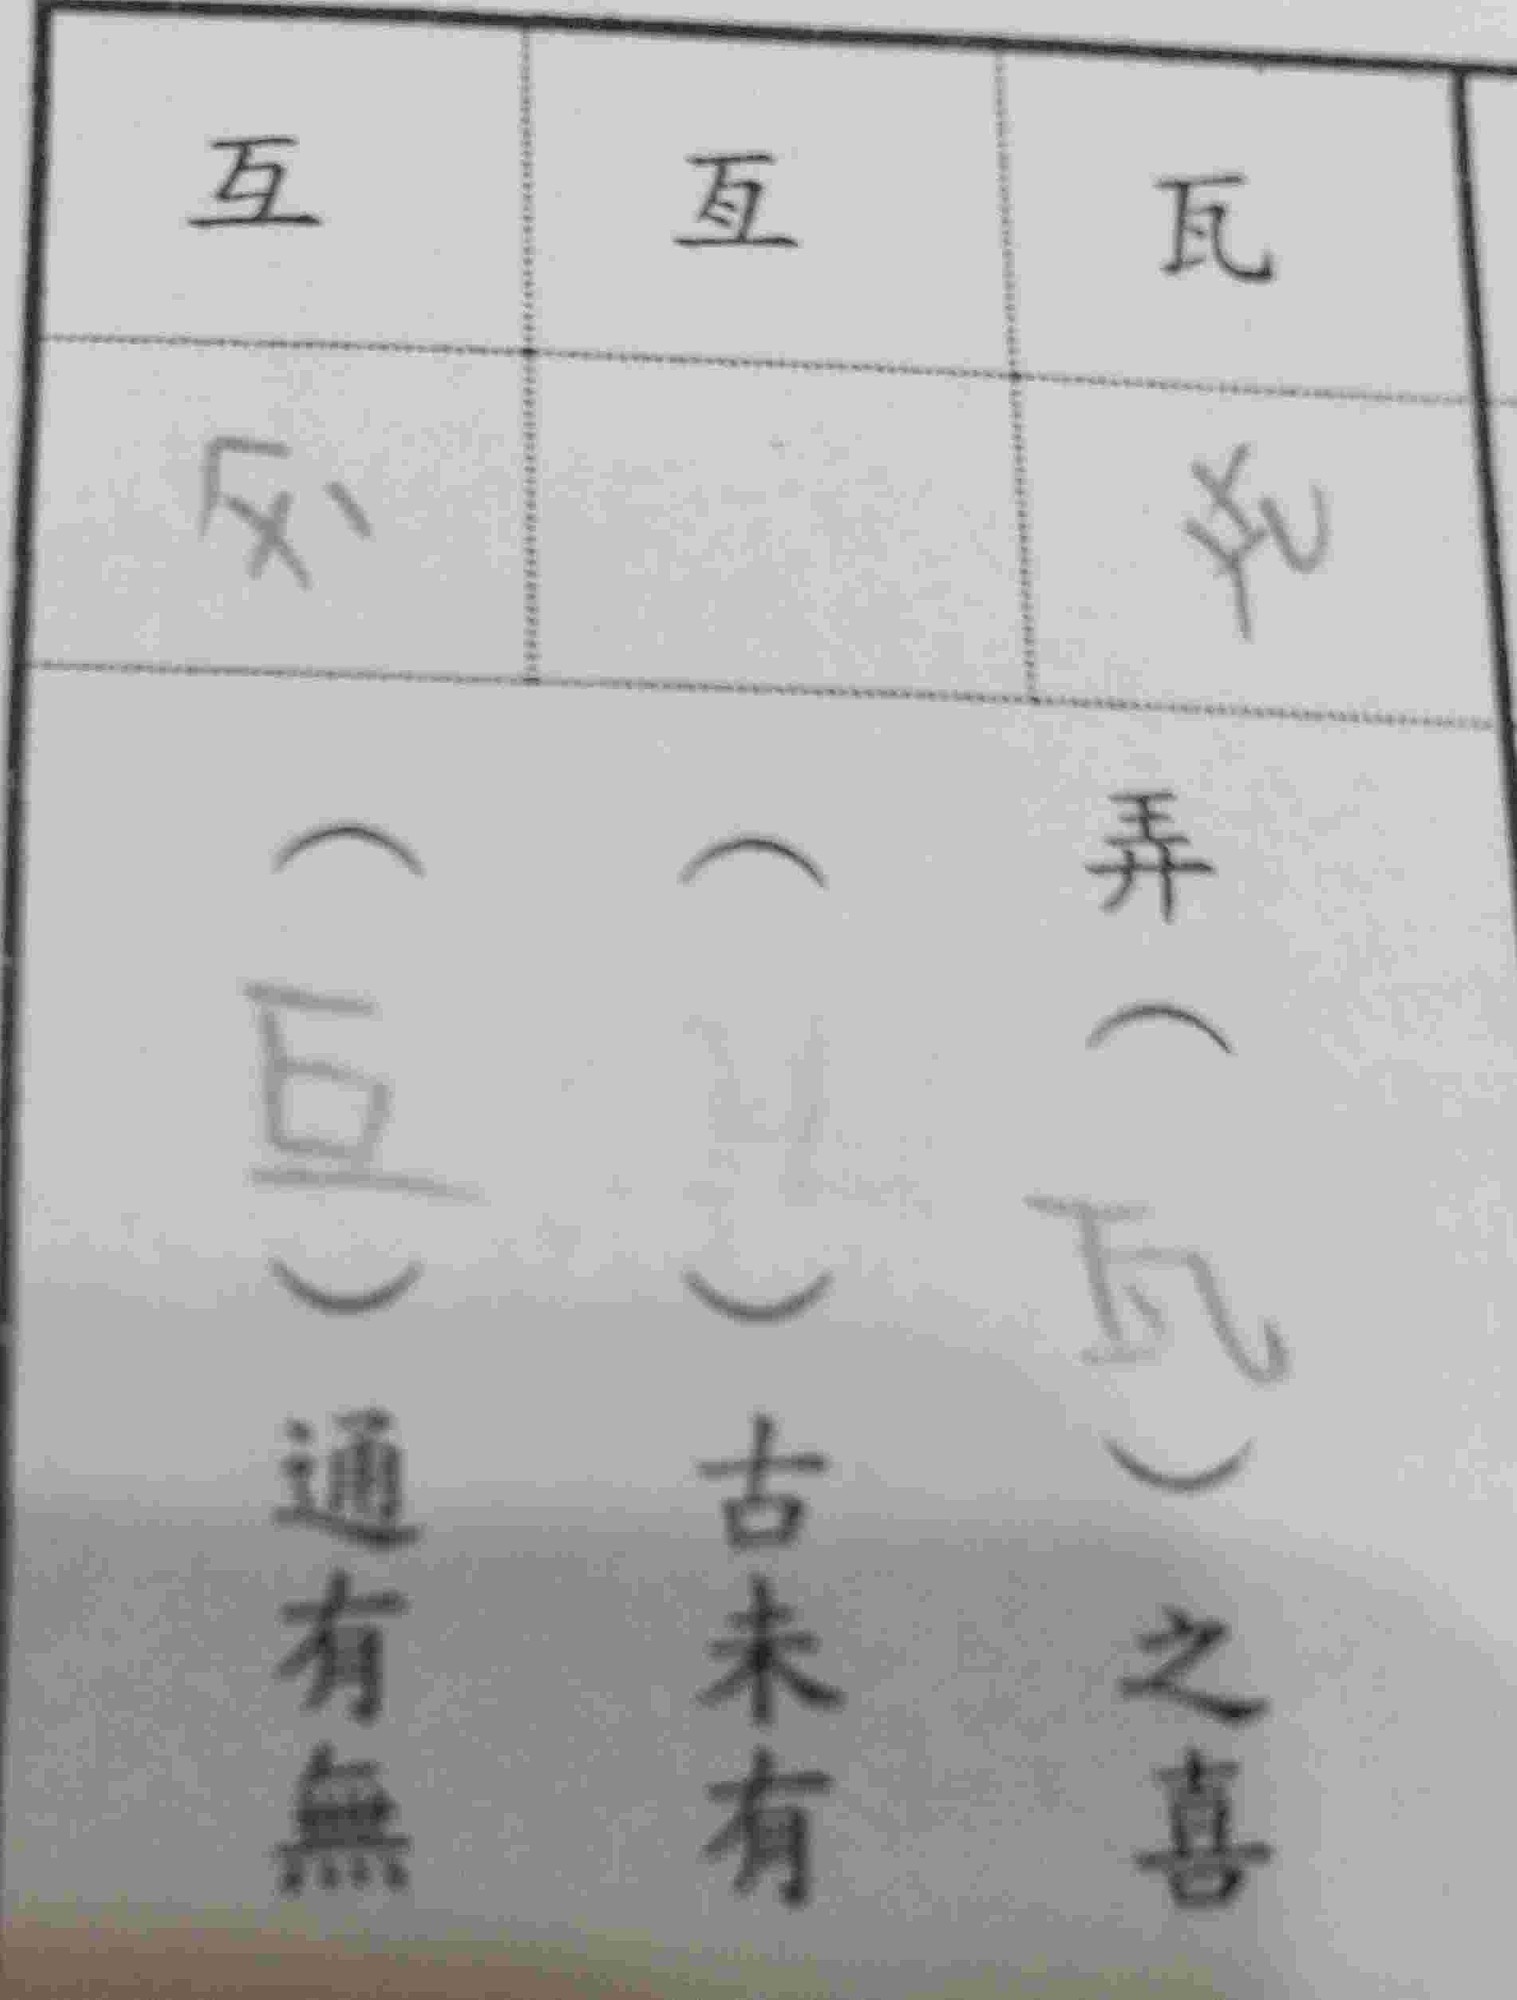 瓦
ㄨㄚˇ
弄（瓦）之喜
亙
（　）古未有
互
ㄏㄨˋ
（互）通有無